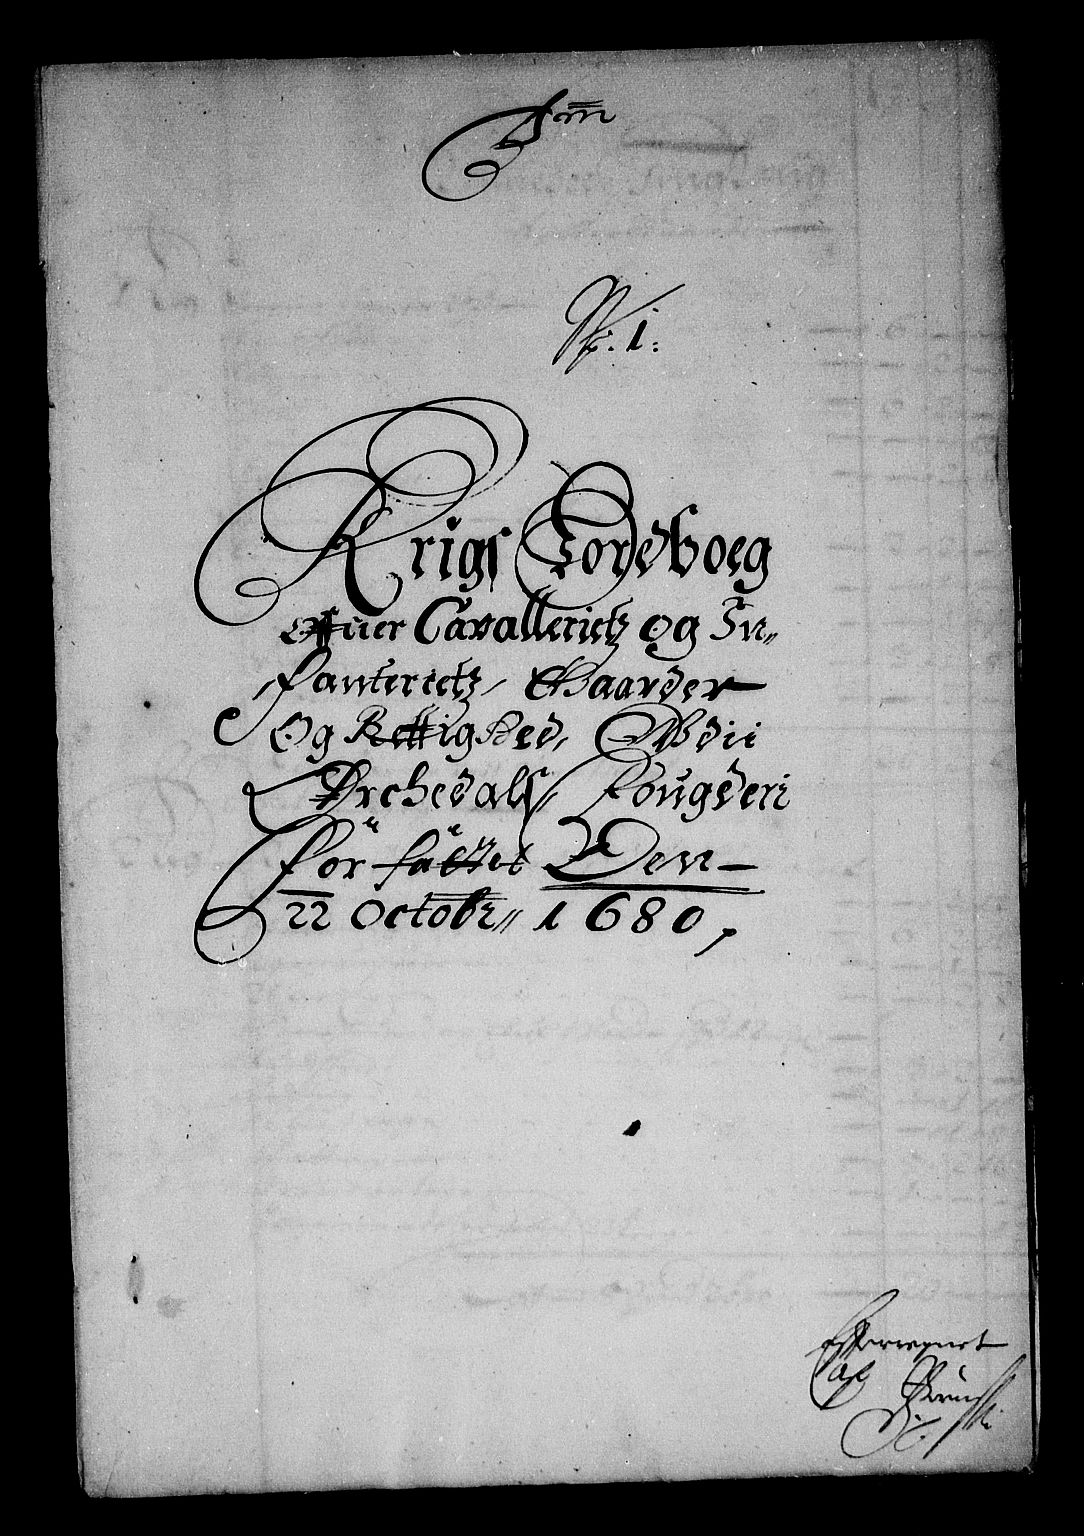 No. 1.
Krigs Jordeboeg
offuer Cavalleriets og In„
fanteriets, Gaarder
Og Rettighed, Wdii
Orchedals„ Fougderi
For fattet Den
22 Octobr„ 1680,
Efterregnet
af